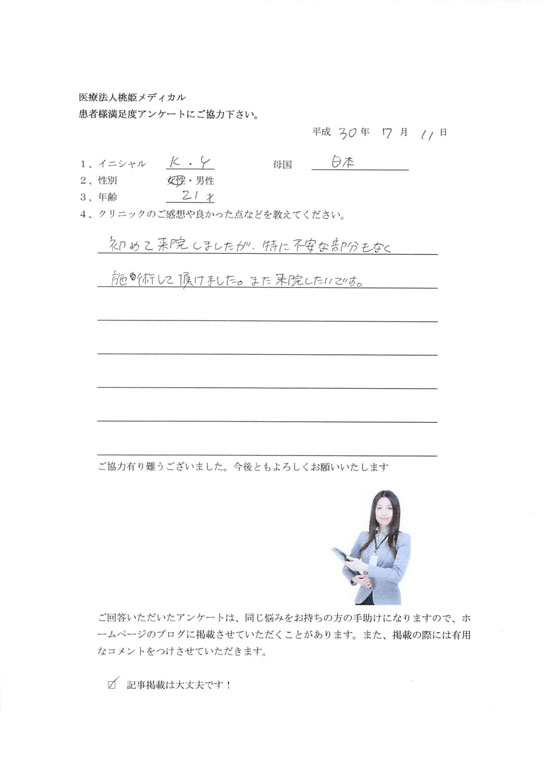 医療法人桃姫メディカル
患者様満足度アンケートにご協力下さい。
平成 30 年 7 月 11 日
1、イニシャル K・Y 母国 日本
2、性別 女性・男性
3、年齢 21 才
4、クリニックのご感想や良かった点などを教えてください。
初めて来院しましたが、特に不安な部分もなく
施術して頂けました。また来院したいです。
ご協力有り難うございました。今後ともよろしくお願いいたします
ご回答いただいたアンケートは、同じ悩みをお持ちの方の手助けになりますので、ホ
ームページのブログに掲載させていただくことがあります。また、掲載の際には有用
なコメントをつけさせていただきます。
☑ 記事掲載は大丈夫です！